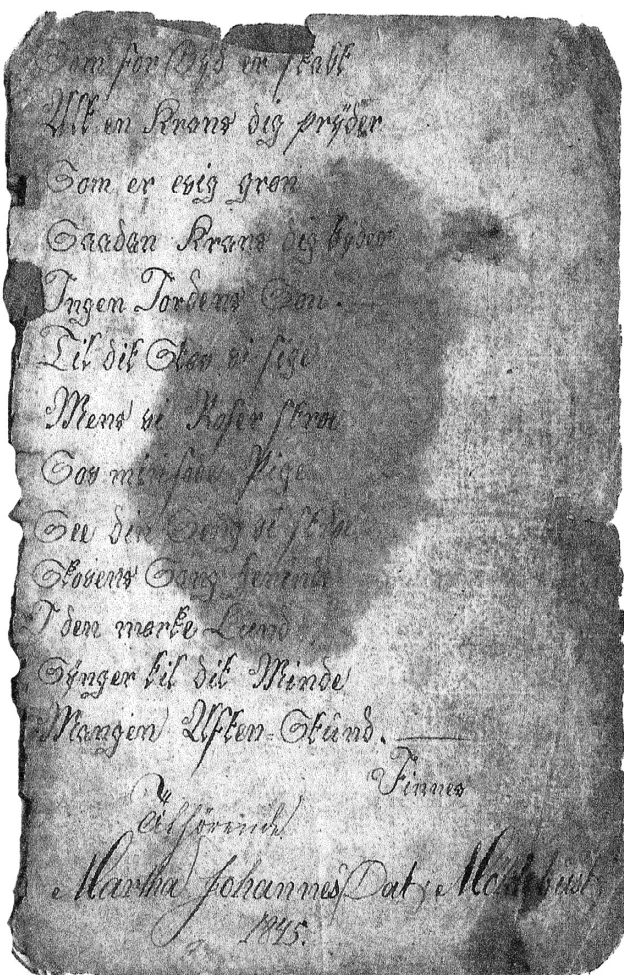 Som for Dyd er skabt
Alt en Krans dig prÿder
Som er evig grøn
Saadan Krans dig byder
Ingen Jordens Søn.
Til dit Støv vi sige
Mens vi Roser strøe
Sov min søde Pige
See din Seng vi
Skovens
I den mørke Lund
Sÿnger til dit Minde
Mangen Aften-Stund.
Finnes
Tilhørende
Martha Johannes Dat;
1845.